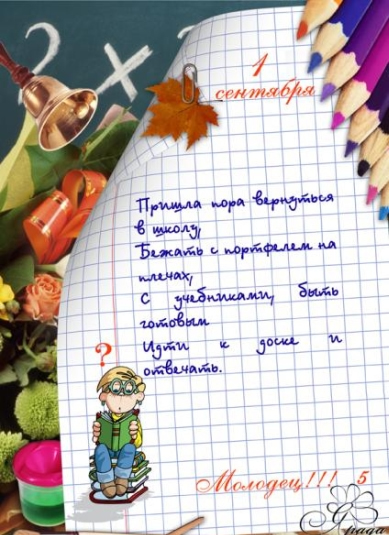 2 x
1
сентября
Пришла пора вернуться
в школу,
Бежать с портфелем на
плечах,
С учебниками, быть
готовым
Идти к доске и
отвечать.
?
Молодец!!! 5
Града